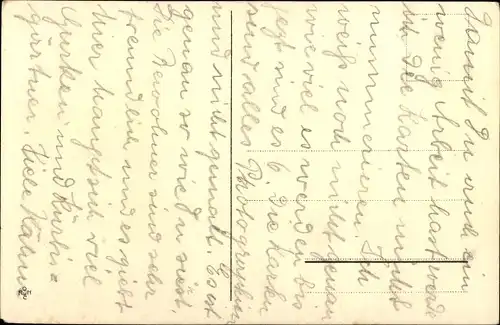 Damit Du auch ein
wenig Arbeit hast werde
ich die Karten nicht
nummerieren. Ich
weiß noch nicht genau
wie viel es werden bis
jetzt sind es 6. Die Karten
sind alles Photographien
und nicht gemalt. Es ist
genau so wie Du siest.
Die Bewohner sind sehr
freundlich und es giebt
hier hauptsich viel
Gurken und Kürbis =
gärtner. Viele Kähne